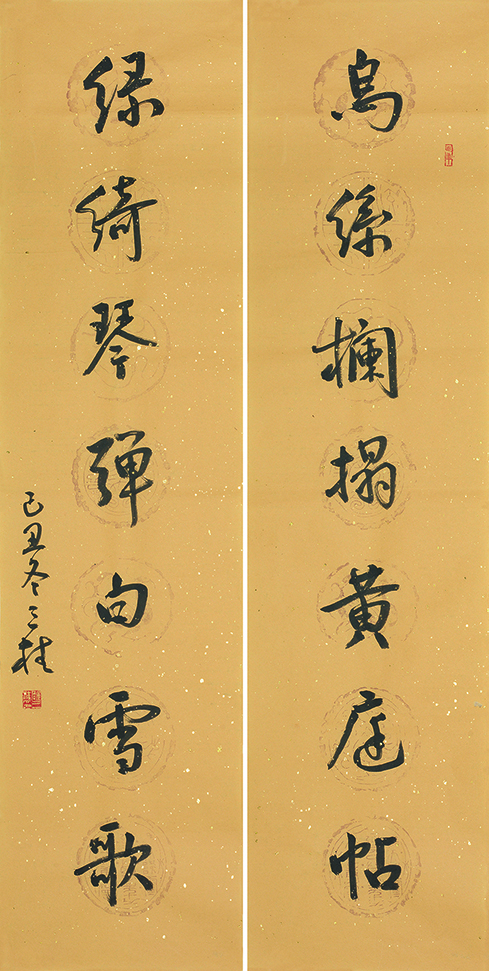 烏絲欄搨黃庭帖
緑綺琴彈白雪歌
己丑冬三桂